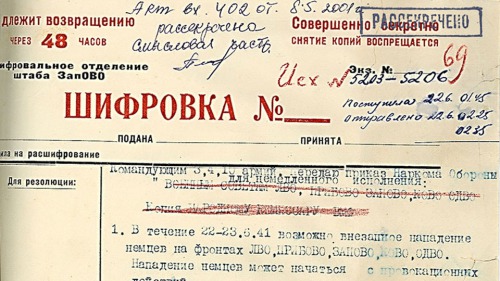 Акт вх. 402 от 8.5.2001г.
рассекречено
РАССЕКРЕЧЕНО
длежит возвращению
ЧЕРЕЗ 48 ЧАСОВ
Совершенно секретно
СНЯТИЕ КОПИЙ ВОСПРЕЩАЕТСЯ
69
ифровальное отделение
штаба ЗапОВО
Экз. №
Исх № 5203-5206
ШИФРОВКА №
Поступила 22.6. 01.45
отправлено 22.6. 02.25
02.35
ПОДАНА
ПРИНЯТА
ила на расшифрование
Для резолюции:
Командующим 3,4,10 армий. Передаю приказ Наркома Обороны
для немедленного исполнения:
ЛВО, ПРИБОВО ЗАПОВО, КОВО ОДВО
Копия НАРОДНОМУ КОМИССАРУ
1. В течение 22-23.6.41 возможно внезапное нападение
немцев на фронтах ЛВО, ПРИБОВО, ЗАПОВО, КОВО, ОДВО.
Нападение немцев может начаться с провокационных
действий